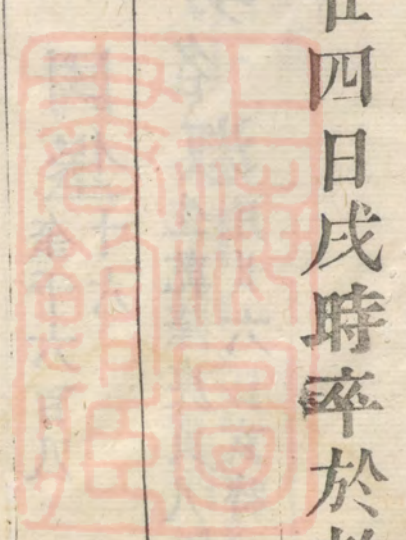 廿四日戌時卒於
上海圖
書館藏